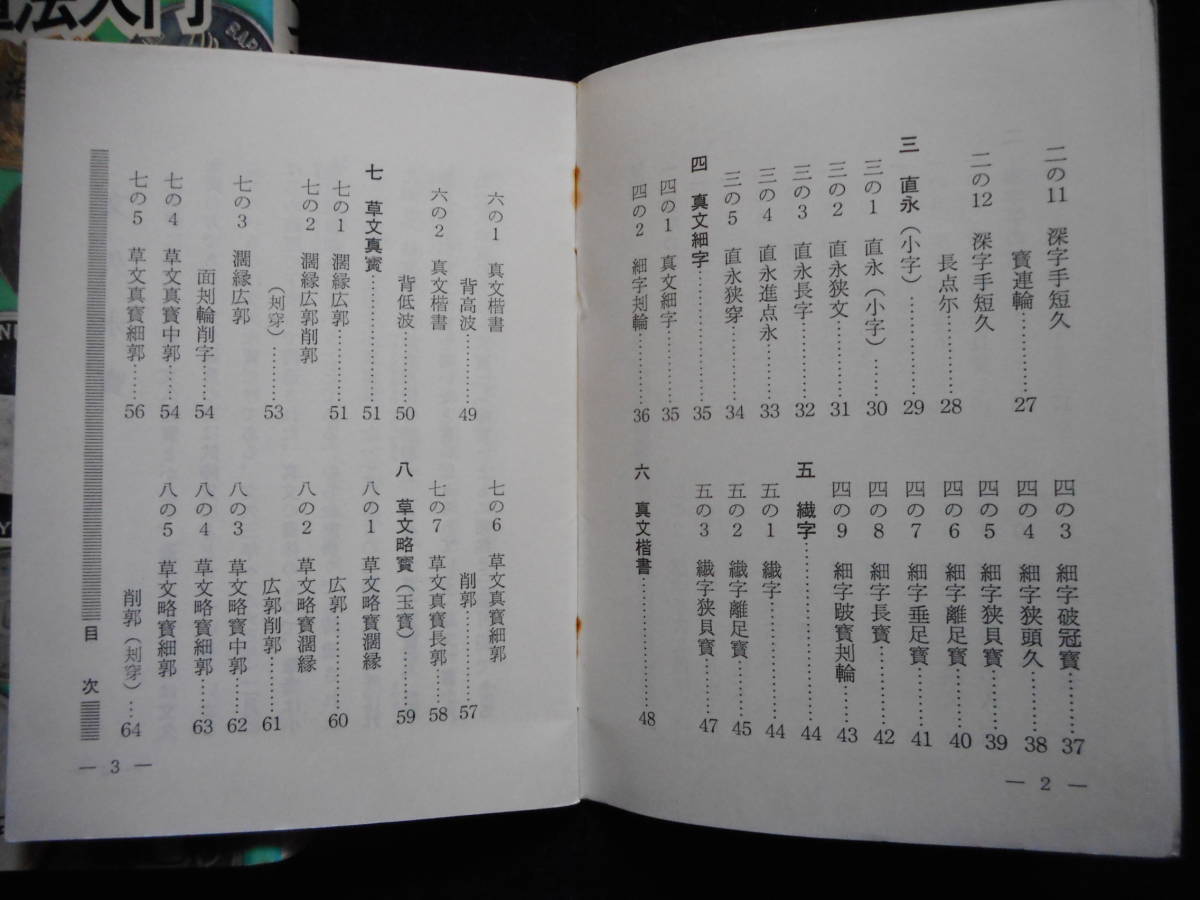 二の11 深字手短久
寶連輪……27
二の12 深字手短久
長点尓……28
三 直永（小字）……29
三の1 直永（小字）……30
三の2 直永狭文……31
三の3 直永長字……32
三の4 直永進点永……33
三の5 直永狭穿……34
四 真文細字……35
四の1 真文細字……35
四の2 細字刔輪……36
四の3 細字破冠寶……37
四の4 細字狭頭久……38
四の5 細字狭貝寶……39
四の6 細字離足寶……40
四の7 細字垂足寶……41
四の8 細字長寶……42
四の9 細字跛寶刔輪……43
五 繊字……44
五の1 繊字……44
五の2 繊字離足寶……45
五の3 繊字狭貝寶……47
六 真文楷書……48
— 2 —
六の1 真文楷書
背高波……49
六の2 真文楷書
背低波……50
七 草文真寳……51
七の1 濶縁広郭……51
七の2 濶縁広郭削郭
（刔穿）……53
七の3 濶縁広郭
面刔輪削字……54
七の4 草文真寶中郭……54
七の5 草文真寶細郭……56
七の6 草文真寶細郭
削郭……57
七の7 草文真寶長郭……58
八 草文略寳（玉寶）……59
八の1 草文略寶濶縁
広郭……60
八の2 草文略寶濶縁
広郭削郭……61
八の3 草文略寶中郭……62
八の4 草文略寶細郭……63
八の5 草文略寶細郭
削郭（刔穿）…64
目 次
— 3 —
法入門